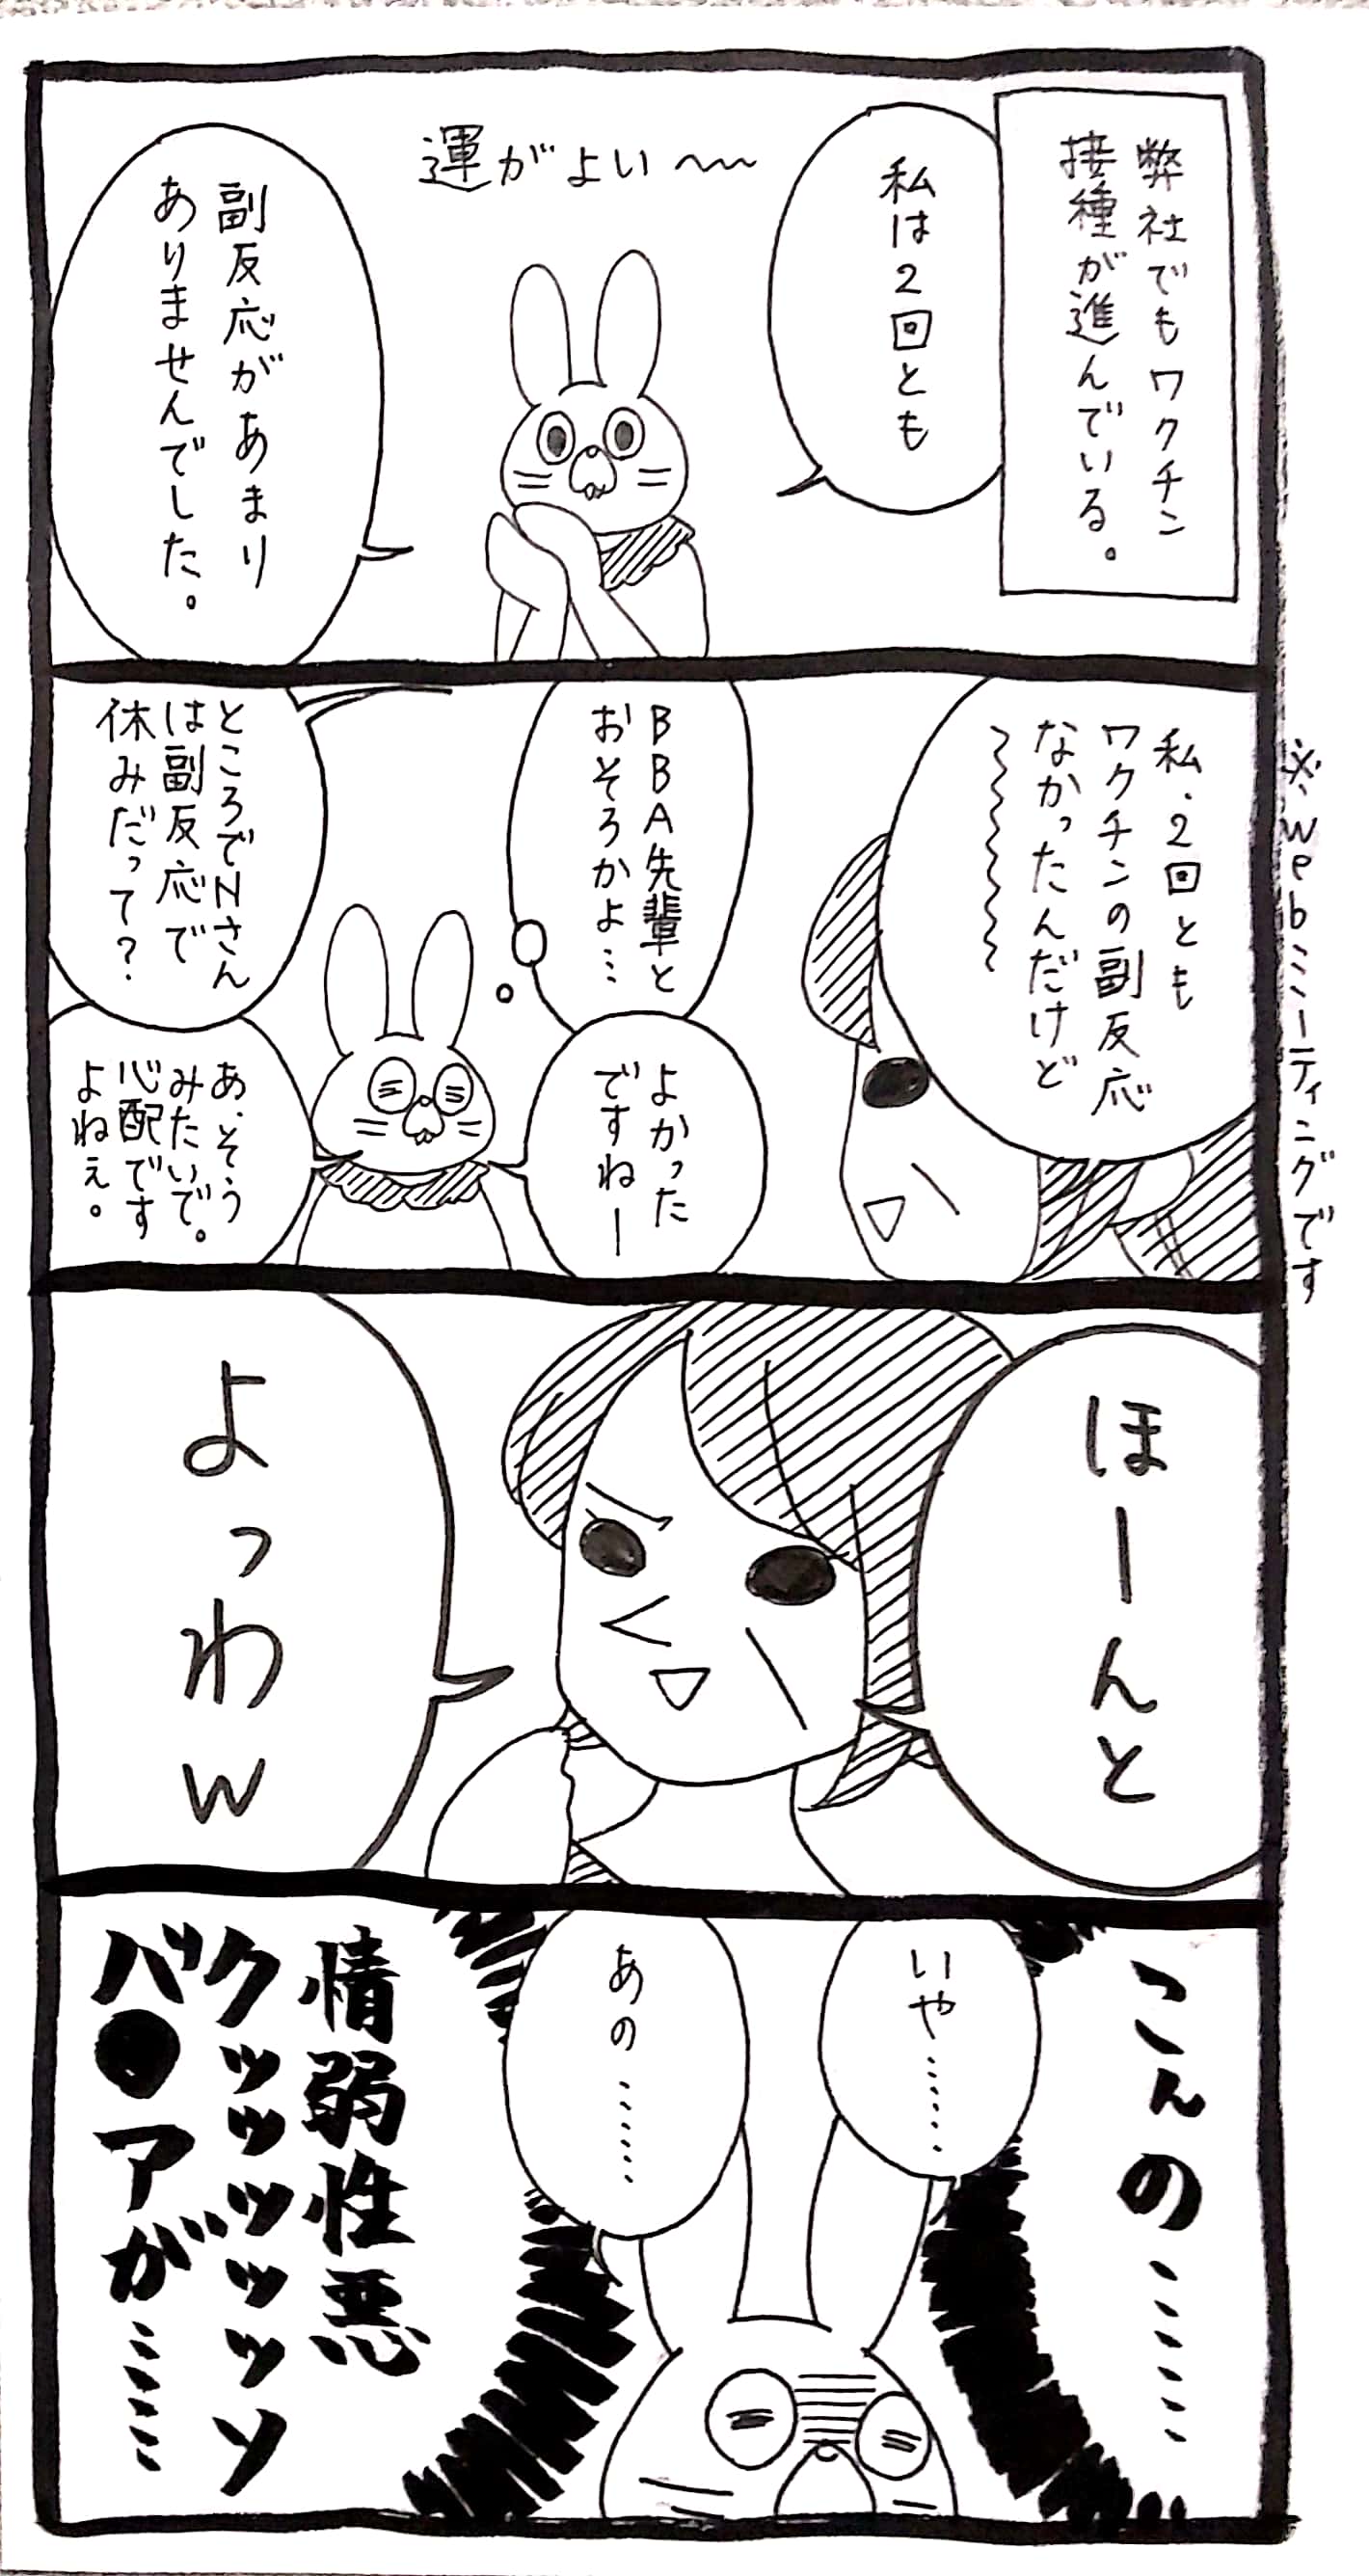 弊社でもワクチン
接種が進んでいる。
私は2回とも
運がよい〜
副反応があまり
ありませんでした。
※webミーティングです
私、2回とも
ワクチンの副反応
なかったんだけど
〜〜〜〜
BBA先輩と
おそろかよ…
よかった
ですねー
ところでNさん
は副反応で
休みだって?
あ、そう
みたいで。
心配です
よねぇ。
ほーんと
よっわw
こんの………
いや……
あの……
情弱性悪
クッッッッッソ
バ●アが………